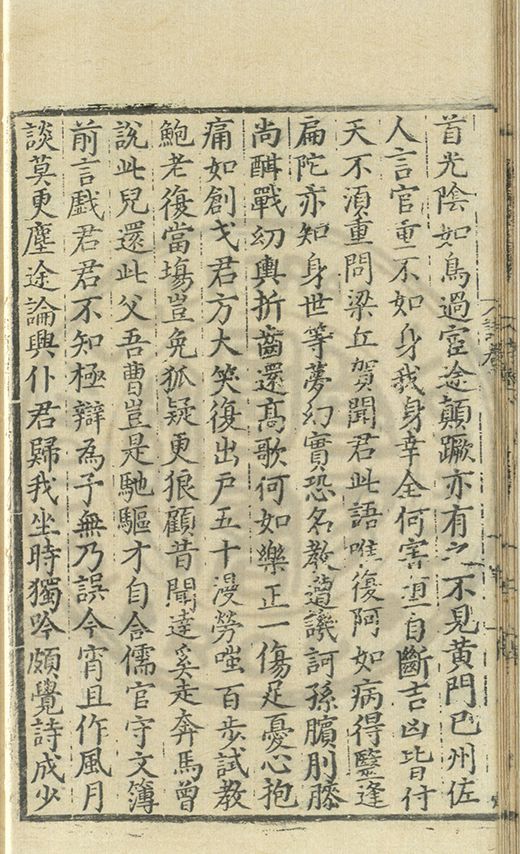 首光陰如鳥過宦途顛蹶亦有之不見黃門巴州佐
人言官重不如身我身幸全何害自斷吉凶皆付
天不湏重問梁丘賀聞君此語唯復阿如病得毉逢
扁陀亦知身世等夢幻實恐名教遭譏訶孫臏刖膝
尚酣戰幼輿折齒還高歌何如樂正一傷足憂心抱
痛如創戈君方大笑復出戶五十漫勞嗤百步試教
鮑老復當塲豈免狐疑更狼顧昔聞達奚走奔馬曾
說此兒還此父吾曹豈是馳驅才自合儒官守文簿
前言戲君君不知極辯為予無乃誤今宵且作風月
談莫更塵途論興仆君歸我坐時獨吟頗覺詩成少